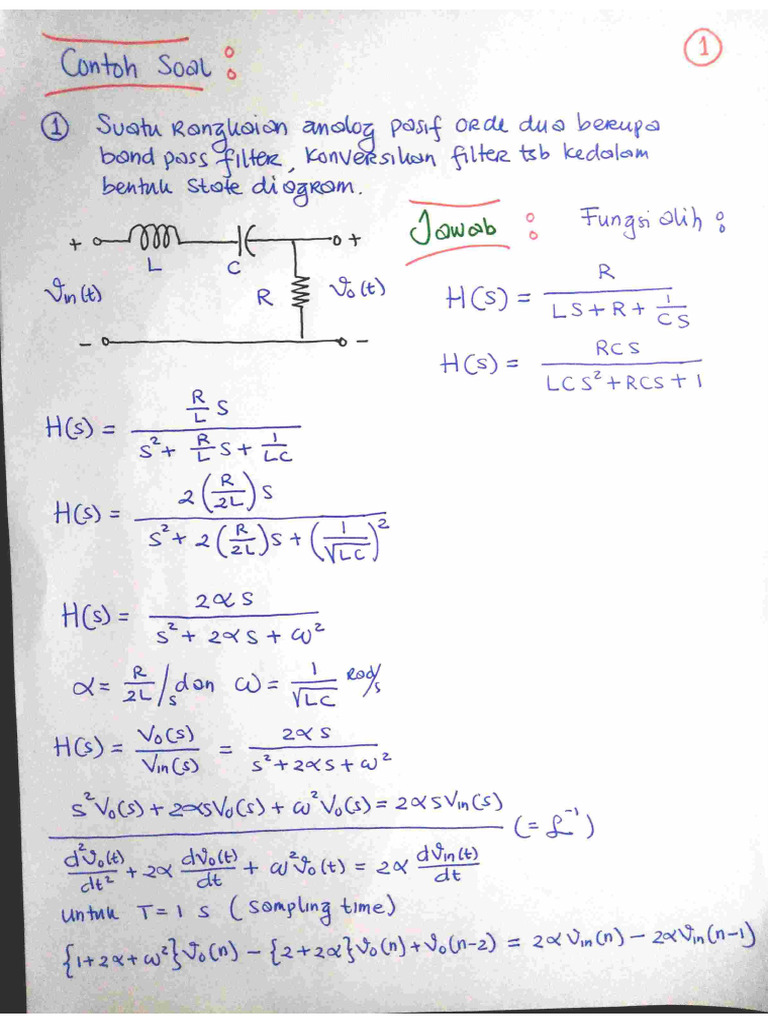 Contoh Soal :
①
① Suatu Rangkaian analog pasif orde dua berupa
band pass filter, Konversikan filter tsb kedalam
bentuk State diagram.
Jawab : Fungsi alih :
+ L C +
Vin(t) R Vo(t)
- -
H(s) = R / (LS + R + 1/CS)
H(s) = RCS / (LCS² + RCS + 1)
H(s) = (R/L) S / (S² + (R/L) S + 1/LC)
H(s) = 2(R/2L)S / (S² + 2(R/2L)S + (1/√LC)²)
H(s) = 2αS / (S² + 2αS + ω²)
α = R/2L /s dan ω = 1/√LC Rad/s
H(s) = Vo(s)/Vin(s) = 2αS / (S² + 2αS + ω²)
S²Vo(s) + 2αSVo(s) + ω²Vo(s) = 2αSVin(s)
(= ℒ⁻¹)
d²Vo(t)/dt² + 2α dVo(t)/dt + ω²Vo(t) = 2α dVin(t)/dt
untuk T = 1 s (Sampling time)
{1+2α+ω²}Vo(n) - {2+2α}Vo(n) + Vo(n-2) = 2αVin(n) - 2αVin(n-1)